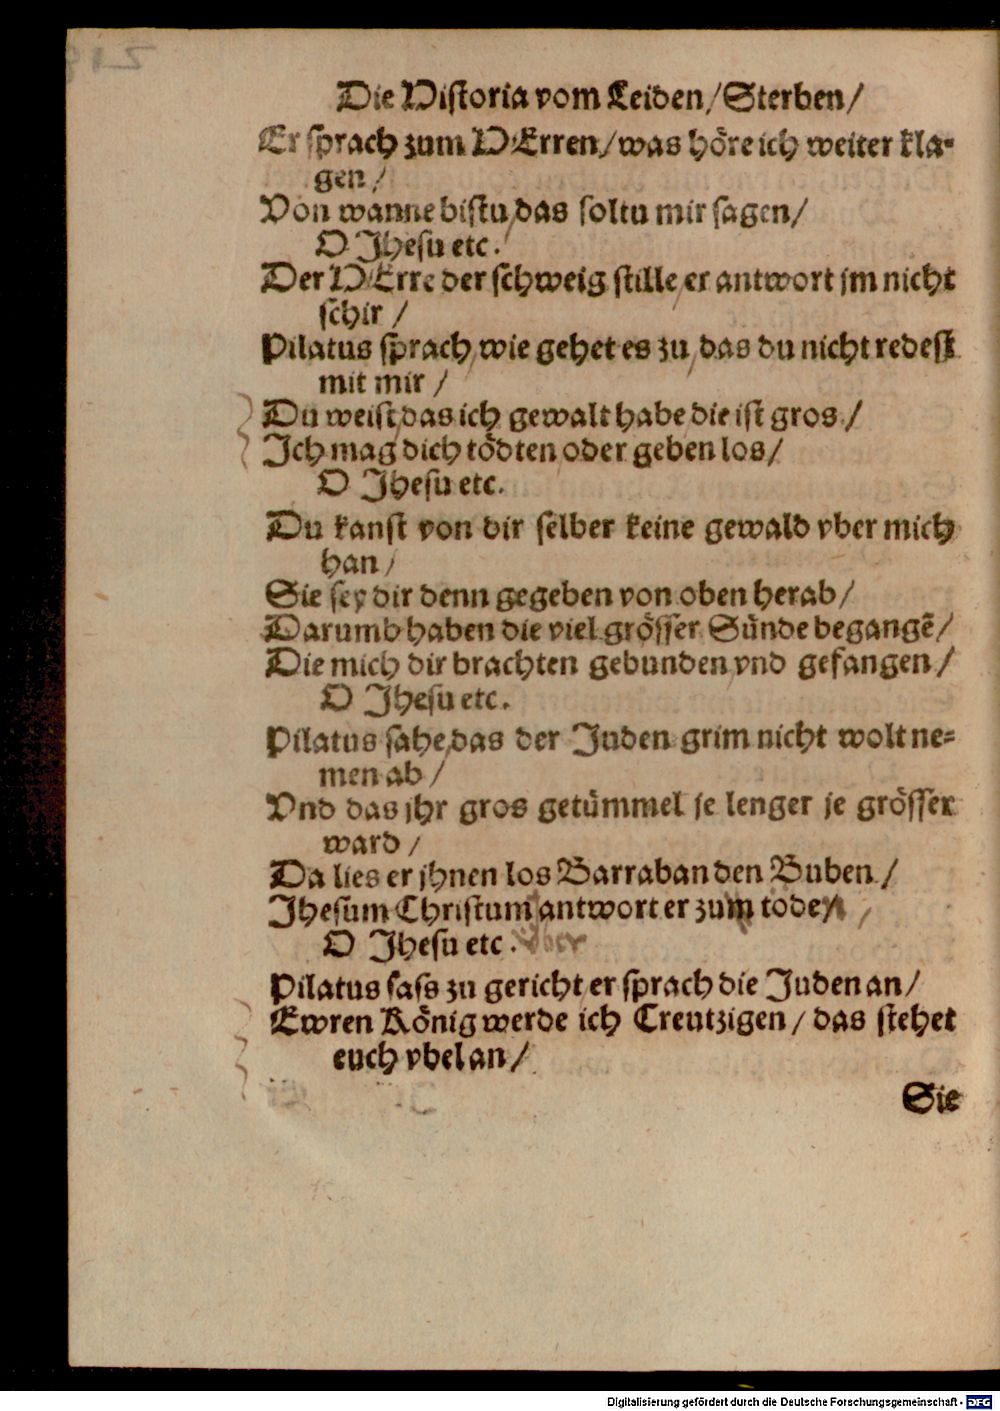 Die Historia vom Leiden/Sterben/
Er sprach zum HErren/was höre ich weiter kla-
gen/
Von wanne bistu/das soltu mir sagen/
O Jhesu etc.
Der HErre der schweig stille/er antwort jm nicht
schir/
Pilatus sprach/wie gehet es zu/das du nicht redest
mit mir/
Du weist/das ich gewalt habe die ist gros/
Ich mag dich tödten oder geben los/
O Jhesu etc.
Du kanst von dir selber keine gewald vber mich
han/
Sie sey dir denn gegeben von oben herab/
Darumb haben die viel grösser Sünde begangē/
Die mich dir brachten gebunden vnd gefangen/
O Jhesu etc.
Pilatus sahe/das der Juden grim nicht wolt ne-
men ab/
Vnd das jhr gros getümmel je lenger je grösser
ward/
Da lies er jhnen los Barraban den Buben/
Jhesum Christum antwort er zum tode/
O Jhesu etc.
Pilatus sass zu gericht/er sprach die Juden an/
Ewren König werde ich Creutzigen/das stehet
euch vbel an/
Sie
Digitalisierung gefördert durch die Deutsche Forschungsgemeinschaft - DFG